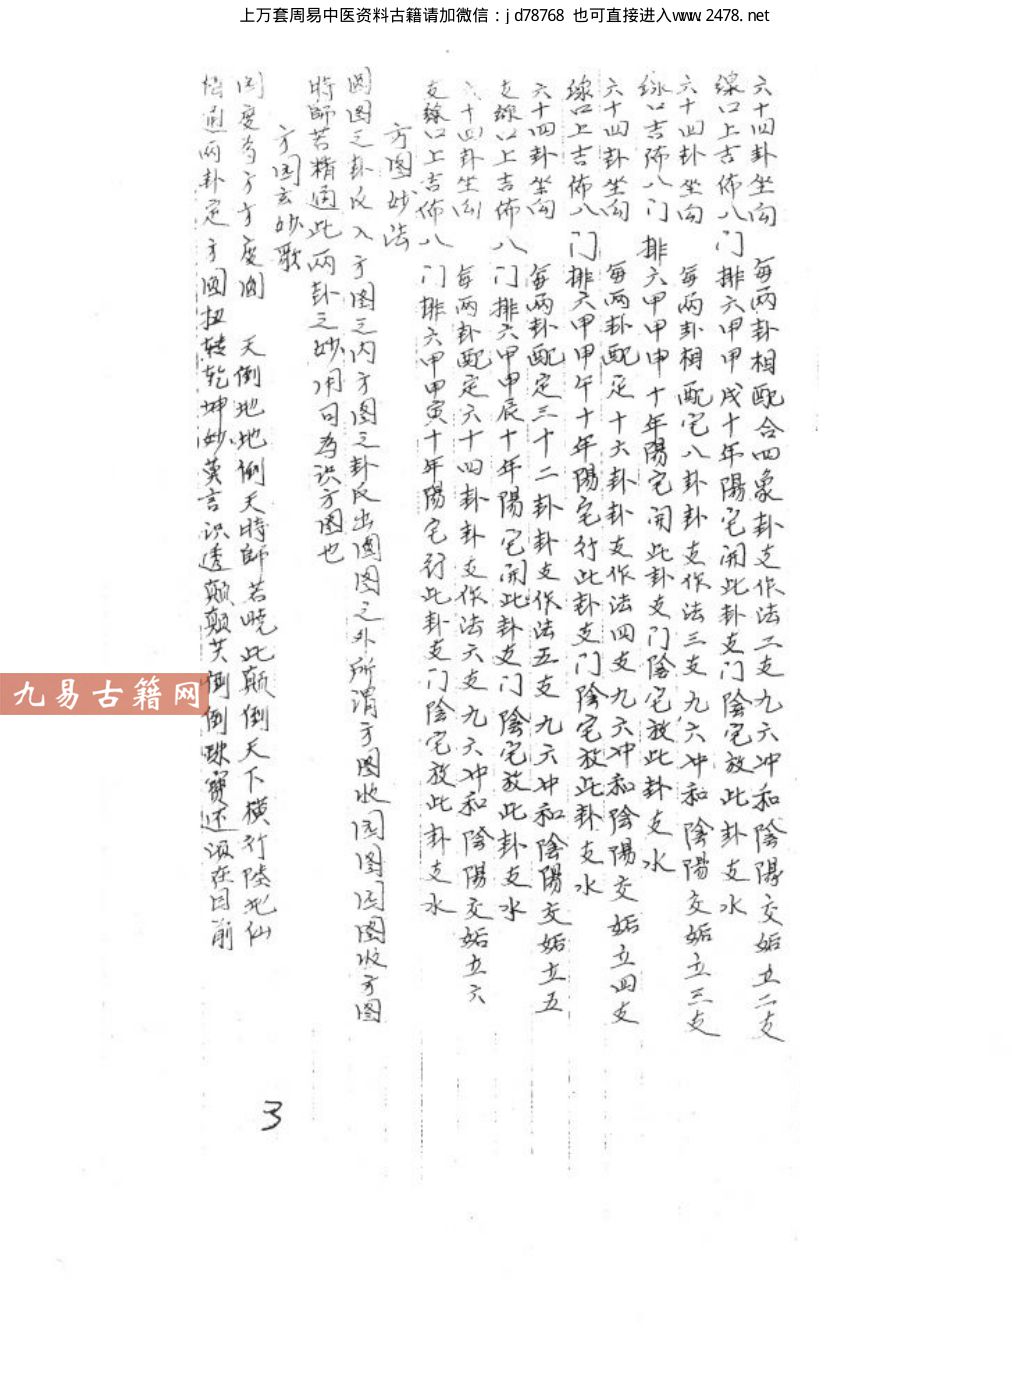 上万套周易中医资料古籍请加微信：jd78768 也可直接进入www.2478.net
六十四卦坐向 每两卦相配合四象卦支作法二支九六冲和陰陽交姤立二支
線口上吉佈八门排六甲甲戌十年陽宅開此卦支门陰宅放此卦支水
六十四卦坐向 每两卦相配定八卦卦支作法三支九六冲和陰陽交姤立三支
線口吉佈八门 排六甲甲申十年陽宅開此卦支门陰宅放此卦支水
六十四卦坐向 每两卦配定十六卦卦支作法四支九六冲和陰陽交姤立四支
線口上吉佈八门排六甲甲午十年陽宅行此卦支门陰宅放此卦支水
六十四卦坐向 每两卦配定三十二卦卦支作法五支九六冲和陰陽交姤立五
支線口上吉佈八门排六甲甲辰十年陽宅開此卦支门陰宅放此卦支水
六十四卦坐向 每两卦配定六十四卦卦支作法六支九六冲和陰陽交姤立六
支線口上吉佈八门排六甲甲寅十年陽宅行此卦支门陰宅放此卦支水
方图妙法
圆图之卦反入方图之内方图之卦反出圆图之外所谓方图收圆图圆图收方图
時師若精通此两卦之妙用可為识方图也
方圆玄妙歌
圆度為方方度圆 天倒地地倒天時師若晓此颠倒天下横行陸地仙
悟通两卦定方圆扭转乾坤妙莫言识透颠颠倒倒珠寶还须在目前
九易古籍网
3